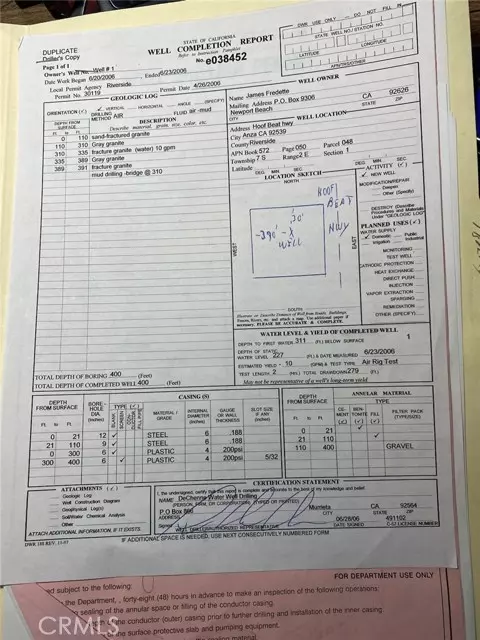 DUPLICATE
Driller's Copy
STATE OF CALIFORNIA
WELL COMPLETION REPORT
Refer to Instruction Pamphlet
No. e038452
DWR USE ONLY — DO NOT FILL IN
STATE WELL NO./STATION NO.
LATITUDE
LONGITUDE
APN/TRS/OTHER
Page 1 of 1
Owner's Well No. Well # 1
Date Work Began 6/20/2006 Ended 6/23/2006
Local Permit Agency Riverside
Permit No. 30119 Permit Date 4/26/2006
GEOLOGIC LOG
ORIENTATION (✓) ✓ VERTICAL HORIZONTAL ANGLE (SPECIFY)
DRILLING METHOD AIR FLUID air -mud
DEPTH FROM SURFACE
DESCRIPTION
Ft. to Ft. Describe material, grain size, color, etc.
0 110 sand-fractured granite
110 310 Gray granite
310 335 fracture granite (water) 10 gpm
335 389 Gray granite
389 391 fracture granite
mud drilling -bridge @ 310
TOTAL DEPTH OF BORING 400 (Feet)
TOTAL DEPTH OF COMPLETED WELL 400 (Feet)
WELL OWNER
Name James Fredette
Mailing Address P.O. Box 9306
Newport Beach CA 92626
CITY STATE ZIP
WELL LOCATION
Address Hoof Beat hwy
City Anza CA 92539
County Riverside
APN Book 572 Page 050 Parcel 048
Township 7 S Range 2 E Section 1
Latitude
DEG. MIN. SEC.
LOCATION SKETCH
NORTH
WEST
EAST
SOUTH
HOOF
BEAT
HWY
30'
-390'- X
WELL
Illustrate or Describe Distance of Well from Roads, Buildings, Fences, Rivers, etc. and attach a map. Use additional paper if necessary. PLEASE BE ACCURATE & COMPLETE.
ACTIVITY (✓)
✓ NEW WELL
MODIFICATION/REPAIR
Deepen
Other (Specify)
DESTROY (Describe Procedures and Materials Under "GEOLOGIC LOG")
PLANNED USES (✓)
WATER SUPPLY
✓ Domestic Public
Irrigation Industrial
MONITORING
TEST WELL
CATHODIC PROTECTION
HEAT EXCHANGE
DIRECT PUSH
INJECTION
VAPOR EXTRACTION
SPARGING
REMEDIATION
OTHER (SPECIFY)
WATER LEVEL & YIELD OF COMPLETED WELL
DEPTH TO FIRST WATER 311 (Ft.) BELOW SURFACE 1
DEPTH OF STATIC
WATER LEVEL 227 (Ft.) & DATE MEASURED 6/23/2006
ESTIMATED YIELD 10 (GPM) & TEST TYPE Air Rig Test
TEST LENGTH 2 (Hrs.) TOTAL DRAWDOWN 279 (Ft.)
May not be representative of a well's long-term yield.
DEPTH FROM SURFACE
BORE-HOLE DIA. (Inches)
CASING (S)
TYPE (✓)
BLANK SCREEN CONDUCTOR FILL PIPE
MATERIAL / GRADE
INTERNAL DIAMETER (Inches)
GAUGE OR WALL THICKNESS
SLOT SIZE IF ANY (Inches)
0 21 12 ✓ STEEL 6 .188
21 110 9 ✓ STEEL 6 .188
0 300 6 ✓ PLASTIC 4 200psi
300 400 6 ✓ PLASTIC 4 200psi 5/32
DEPTH FROM SURFACE
ANNULAR MATERIAL
TYPE
CE-MENT (✓) BEN-TONITE (✓) FILL (✓) FILTER PACK (TYPE/SIZE)
0 21 ✓
21 110 ✓
110 400 GRAVEL
ATTACHMENTS (✓)
Geologic Log
Well Construction Diagram
Geophysical Log(s)
Soil/Water Chemical Analysis
Other
ATTACH ADDITIONAL INFORMATION, IF IT EXISTS.
CERTIFICATION STATEMENT
I, the undersigned, certify that this report is complete and accurate to the best of my knowledge and belief.
NAME DeChenne Water Well Drilling
(PERSON, FIRM, OR CORPORATION) (TYPED OR PRINTED)
P.O Box Murrieta CA 92564
ADDRESS CITY STATE ZIP
Signed
WELL DRILLER/AUTHORIZED REPRESENTATIVE
06/28/06 491102
DATE SIGNED C-57 LICENSE NUMBER
DWR 188 REV.
IF ADDITIONAL SPACE IS NEEDED, USE NEXT CONSECUTIVELY NUMBERED FORM
FOR DEPARTMENT USE ONLY
ed subject to the following:
the Department, , forty-eight (48) hours in advance to make an inspection of the following operations:
sealing of the annular space or filling of the conductor casing.
the conductor (outer) casing prior to further drilling and installation of the inner casing
the surface protective slab and pumping equipment.
CRMLS